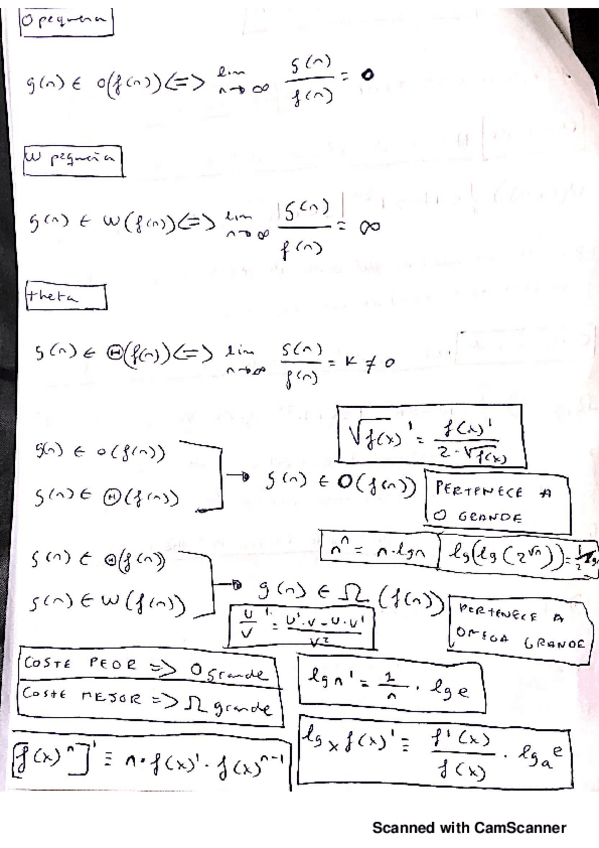 O pequena
g(n) ∈ o(f(n)) <=> lim n→∞ g(n)/f(n) = 0
W pequeña
g(n) ∈ W(f(n)) <=> lim n→∞ g(n)/f(n) = ∞
theta
g(n) ∈ Θ(f(n)) <=> lim n→∞ g(n)/f(n) = K ≠ 0
√f(x)' = f(x)'/2·√f(x)
g(n) ∈ o(f(n))
g(n) ∈ Θ(f(n))
→ g(n) ∈ O(f(n))
PERTENECE A
O GRANDE
n^n = n·lgn
lg(lg(2^√n)) = 1/2
g(n) ∈ Θ(f(n))
g(n) ∈ W(f(n))
→ g(n) ∈ Ω(f(n))
PERTENECE A
OMEGA GRANDE
U/V ' = U'·V-U·V'/V²
COSTE PEOR => O grande
COSTE MEJOR => Ω grande
lg n' = 1/n · lg e
[f(x)^n]' ≡ n·f(x)'·f(x)^n-1
lg x f(x)' ≡ f'(x)/f(x) · lg a e
Scanned with CamScanner